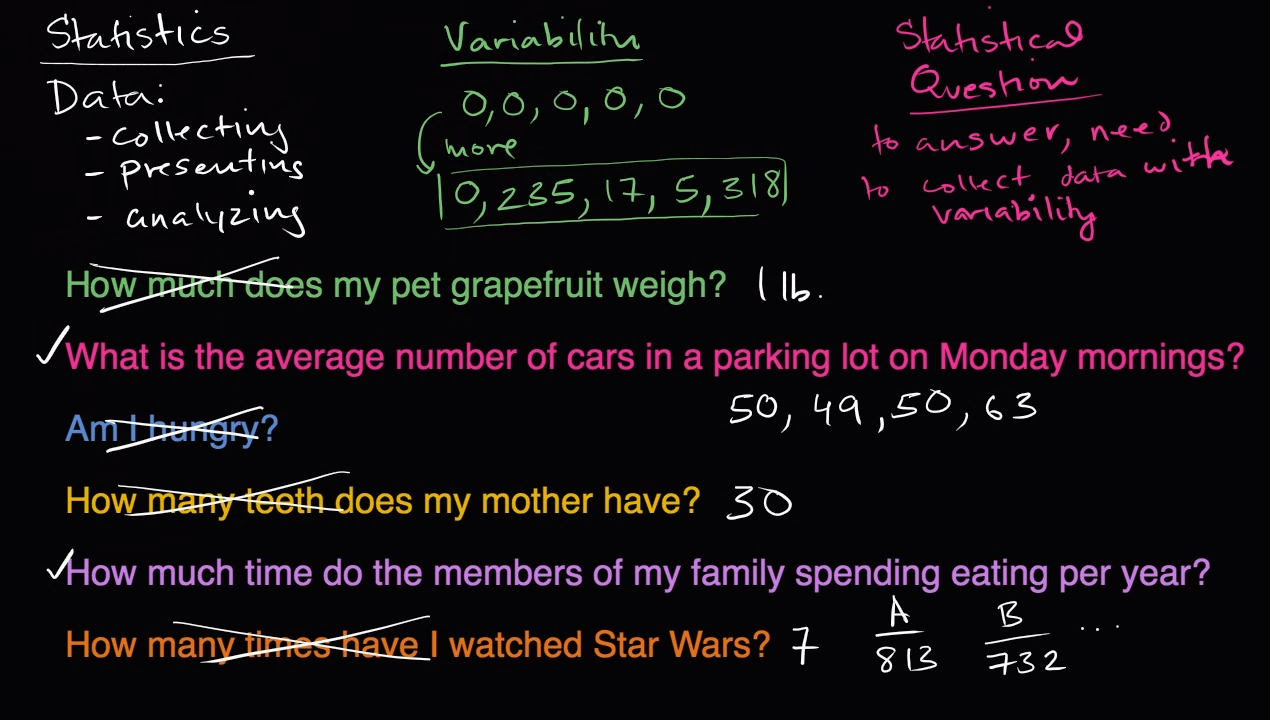 Statistics
Data:
- collecting
- presenting
- analyzing
Variability
0, 0, 0, 0, 0
more
0, 235, 17, 5, 318
Statistical
Question
to answer, need
to collect data with
variability
How much does my pet grapefruit weigh? 1 lb.
What is the average number of cars in a parking lot on Monday mornings?
50, 49, 50, 63
Am I hungry?
How many teeth does my mother have? 30
How much time do the members of my family spending eating per year?
A B ...
813 732
How many times have I watched Star Wars? 7